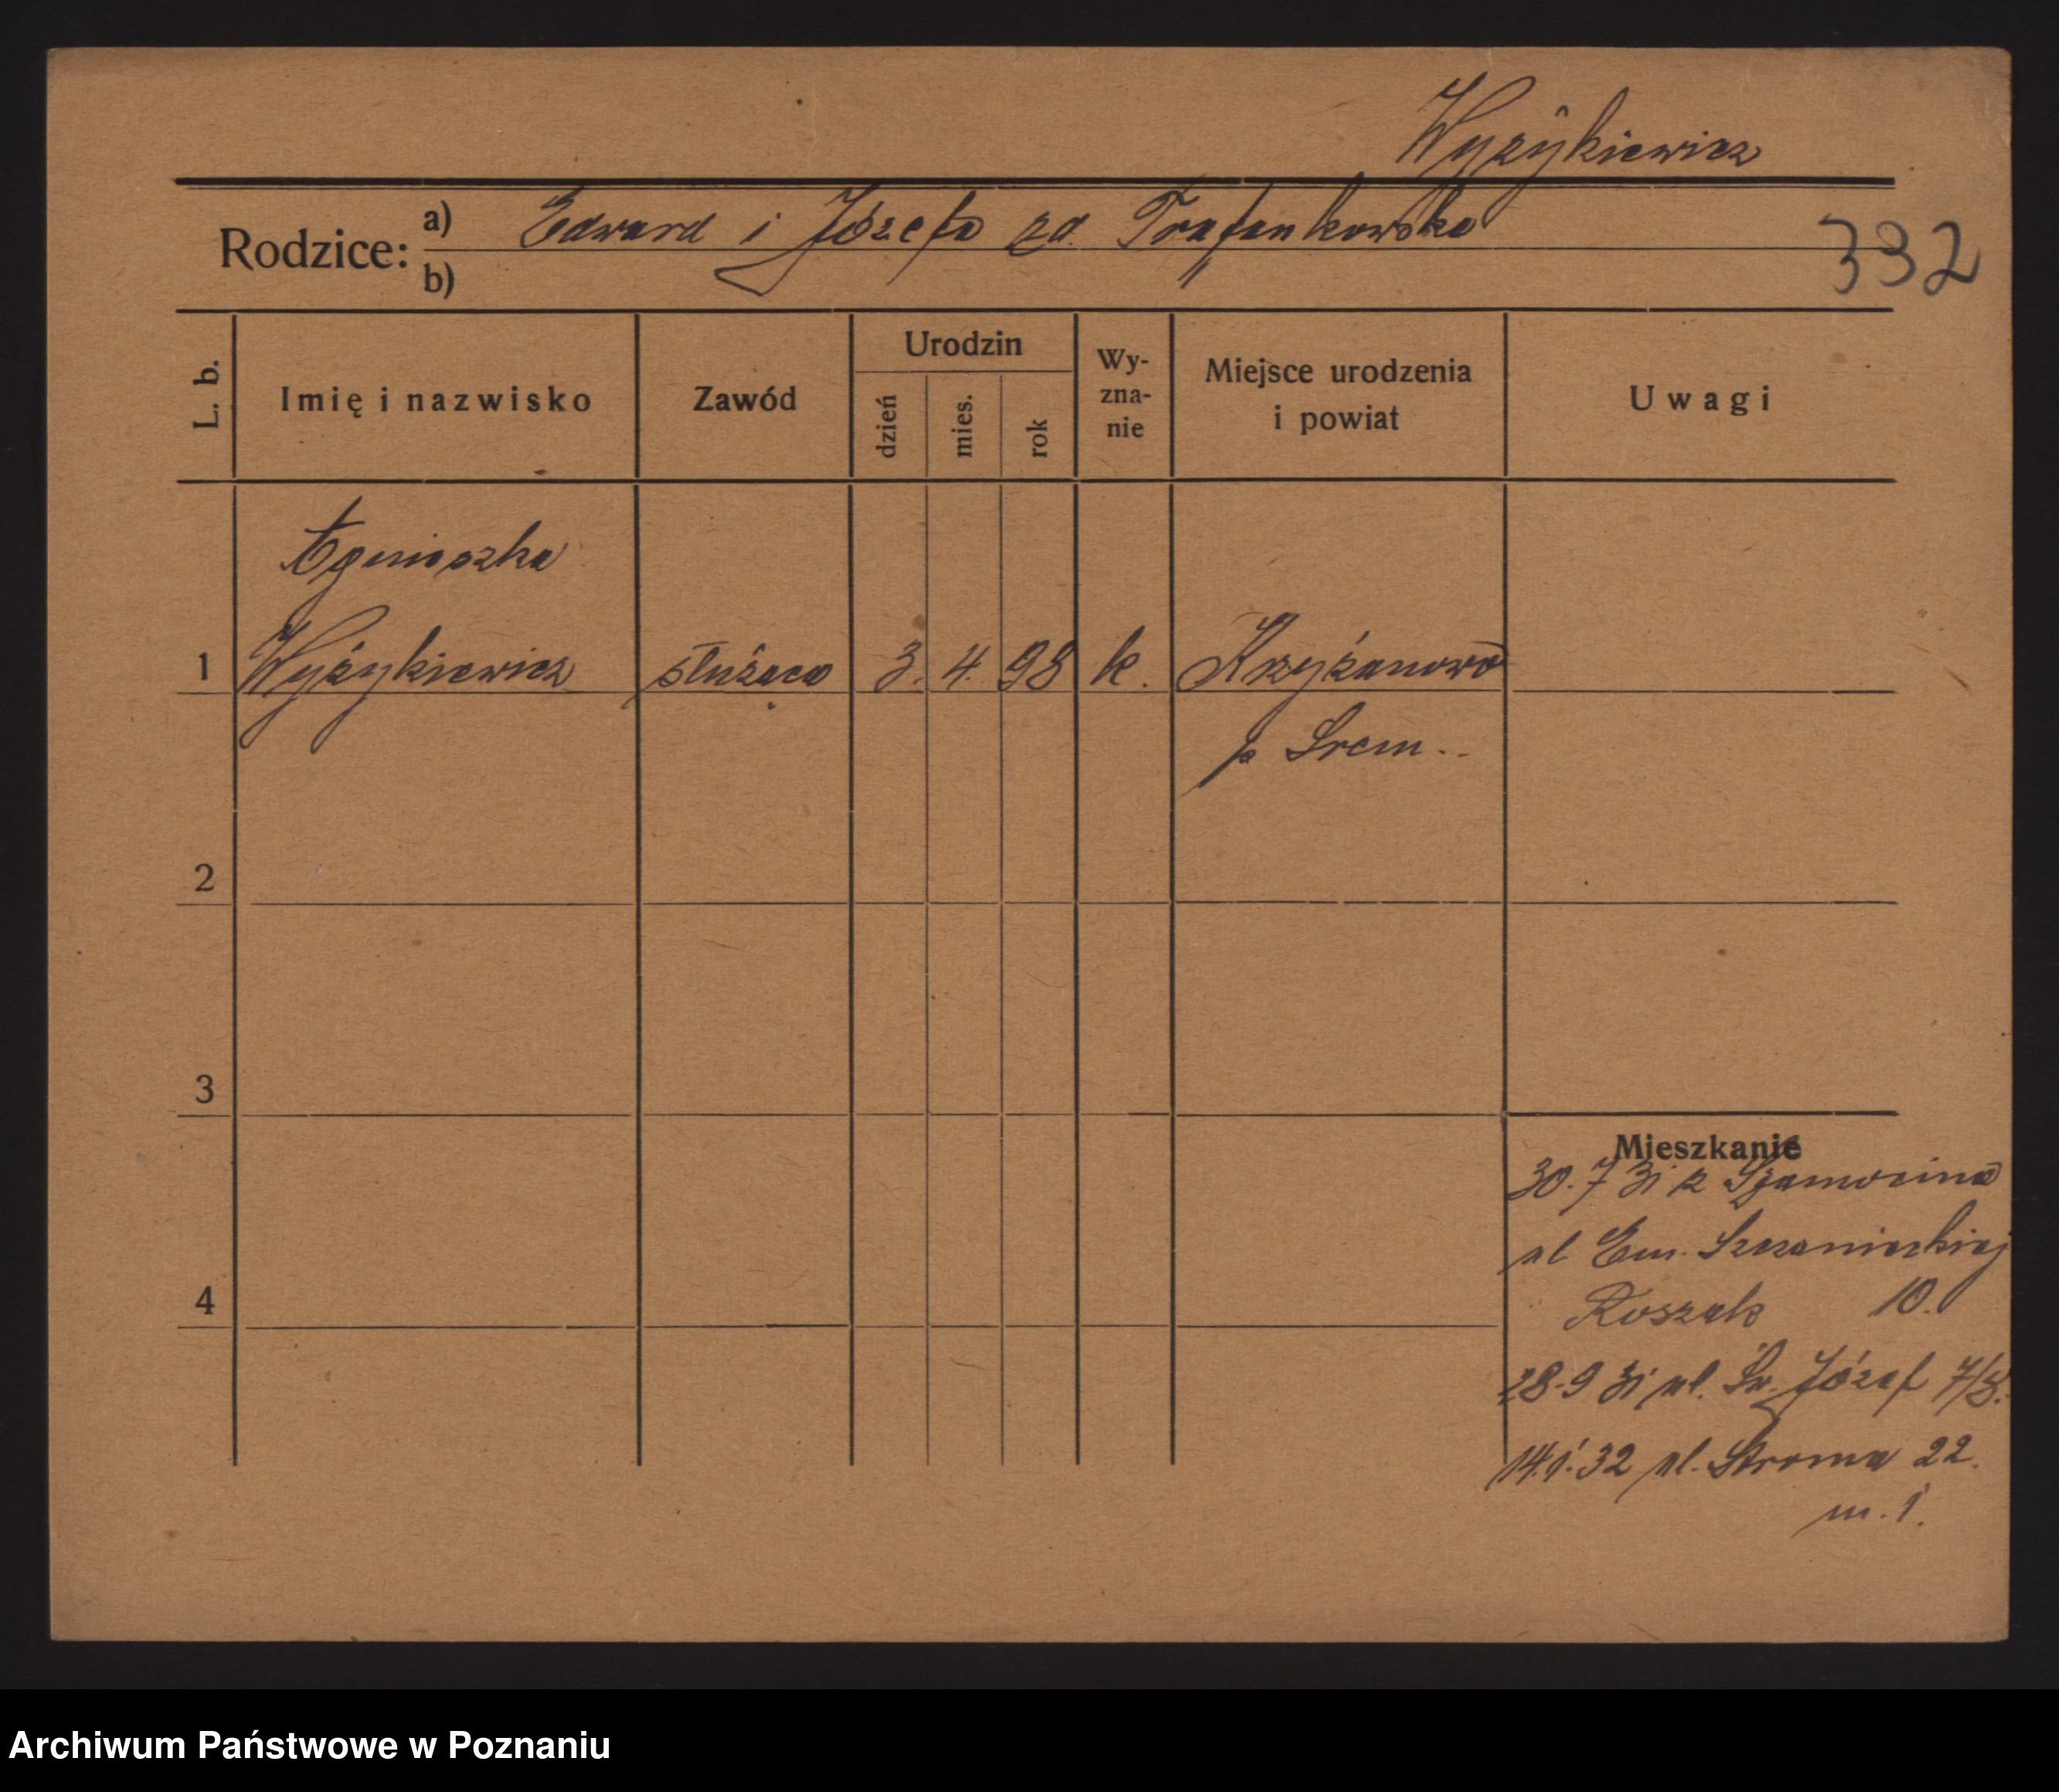 Wyżykiewicz
Rodzice: a) Edward i Józefa zd. Trafankowska
b)
332
L. b. Imię i nazwisko Zawód Urodzin dzień mies. rok Wy-zna-nie Miejsce urodzenia i powiat Uwagi
Agnieszka
1 Wyżykiewicz służąca 3. 4. 98 k. Krzyżanowo
p Śrem..
2
3
Mieszkanie
30.7 31 z Szamocina
ul Em. Szczanieckiej
4 Roszak 10.
28.9 31 ul. Św. Józef 7/8.
14.1.32 ul. Stroma 22.
m. 1.
Archiwum Państwowe w Poznaniu